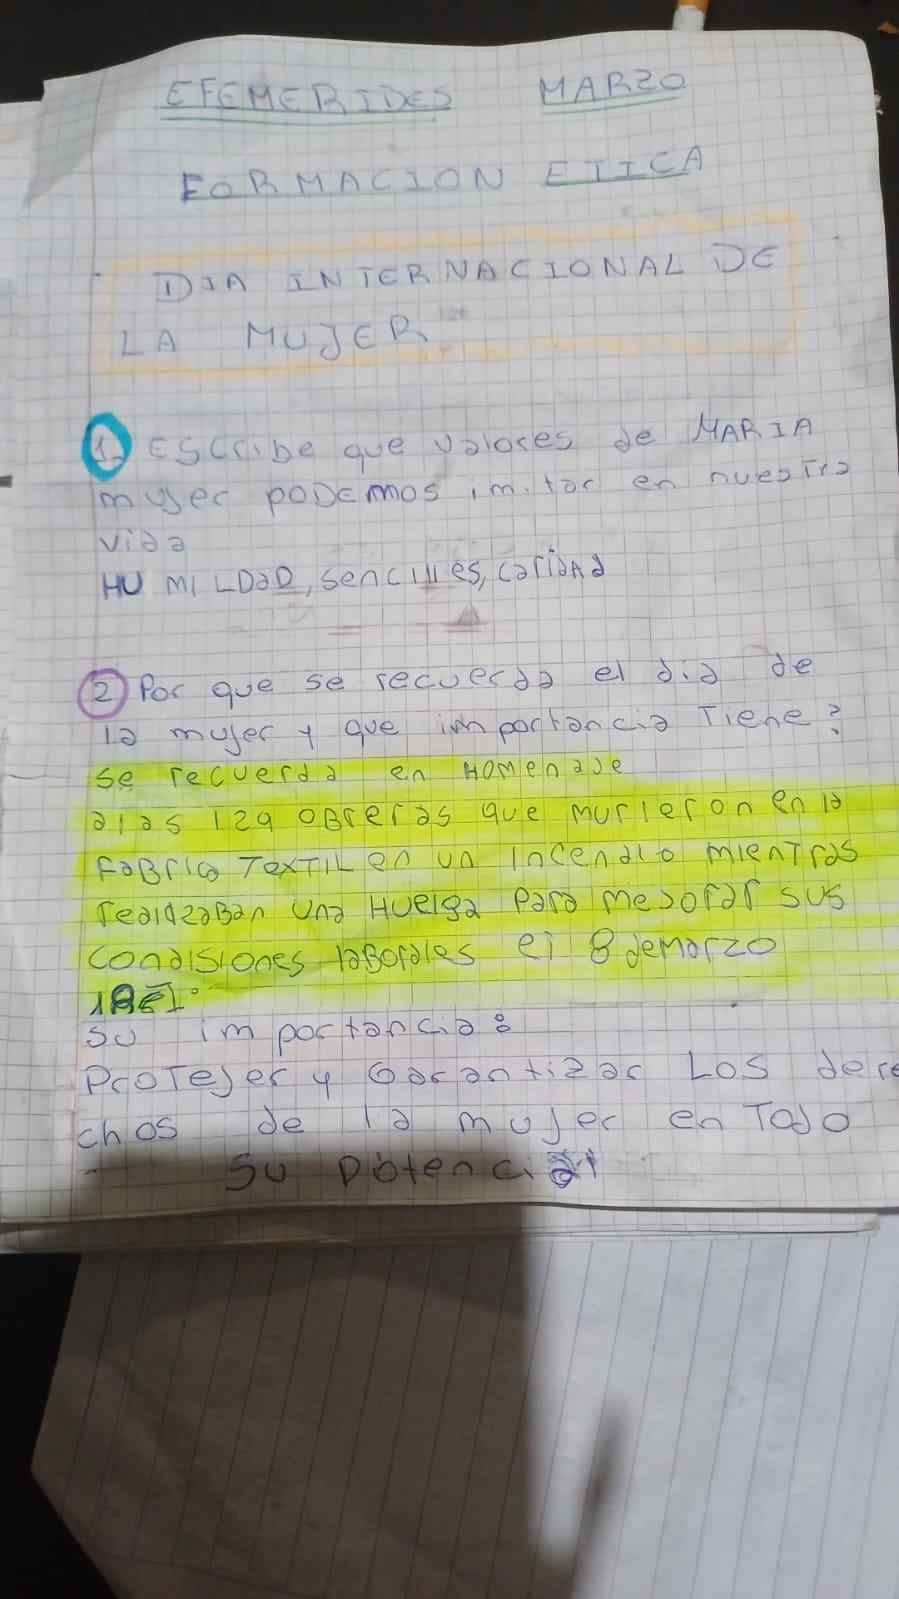 EFEMERIDES MARZO
FORMACION ETICA
DIA INTERNACIONAL DE
LA MUJER
1. Escribe que valores de MARIA
mujer PODEMOS imitar en nuestra
vida
HUMILDAD, sencilles, caridAd
2 Por que se recuerda el dia de
la mujer y que importancia Tiene?
se recuerda en HOMENaje
a las 129 OBreras que murieron en la
FaBrica TexTIL en un incendio mienTras
realizaBan una Huelga Para mejorar sus
condisiones laBorales el 8 demarzo
su importancia:
ProTejer y Garantizar Los dere
chos de la mujer en Todo
su Potencial